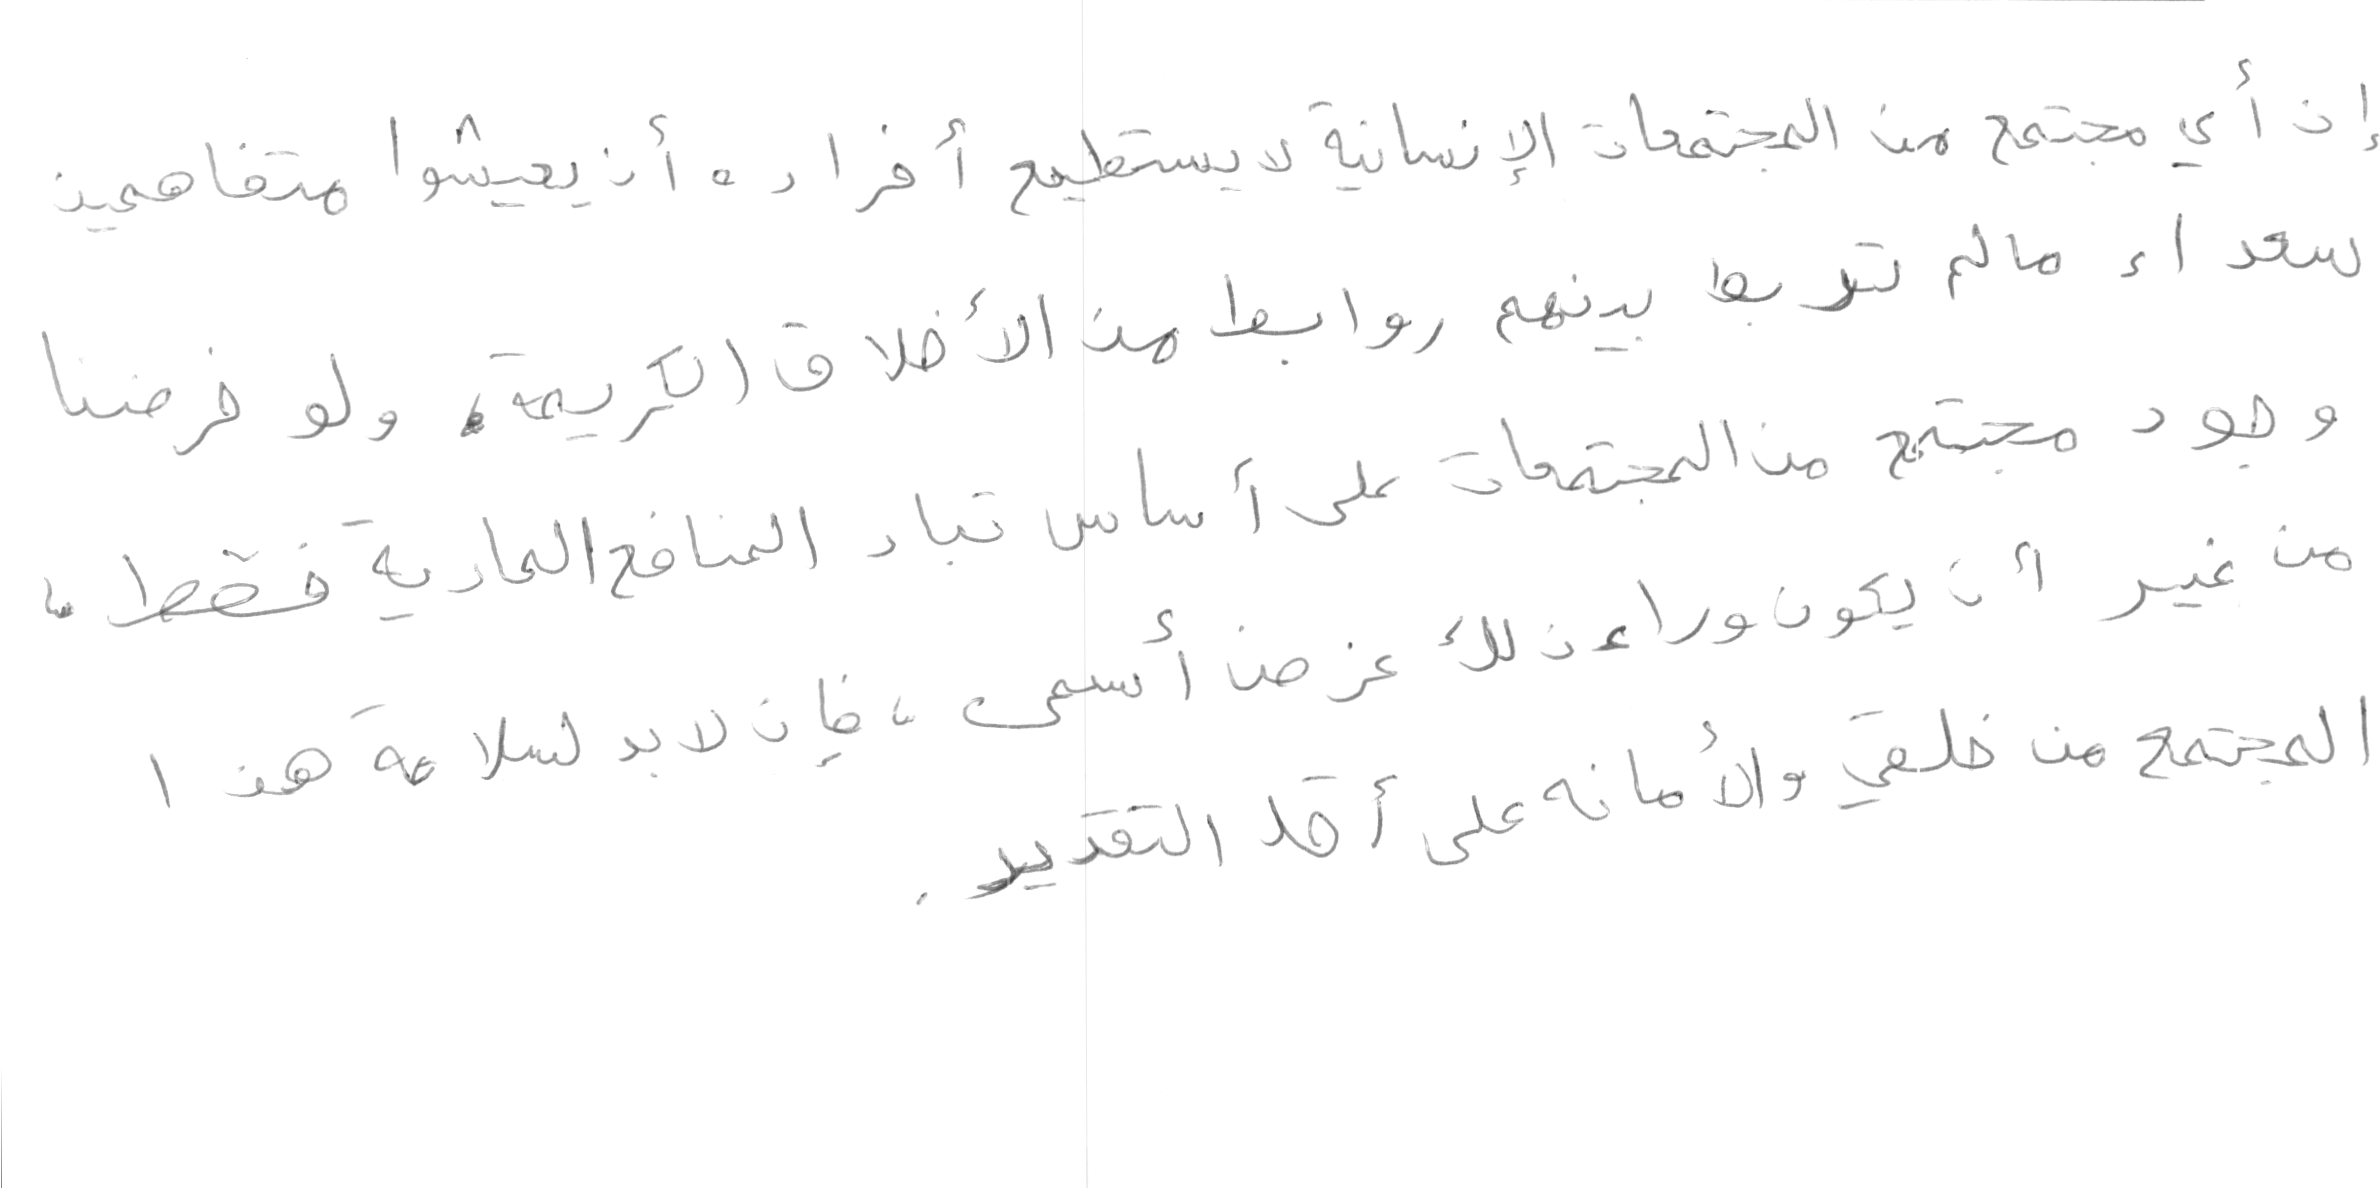 إن أي مجتمع من المجتمعات الإنسانية لا يستطيع أفراده أن يعيشوا متفاهمين
سعداء مالم تربط بينهم روابط من الأخلاق الكريمة، ولو فرضنا
وجود مجتمع من المجتمعات على أساس تباد المنافع المادية فقط،
من غير أن يكون وراء ذلك غرض أسمى، فإن لابد لسلامة هذا
المجتمع من خلقي والأمانه على أقل التقدير.